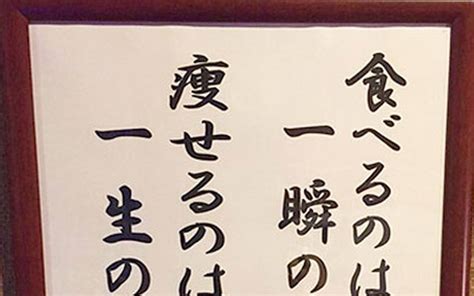 食べるのは
一瞬の
痩せるのは
一生の